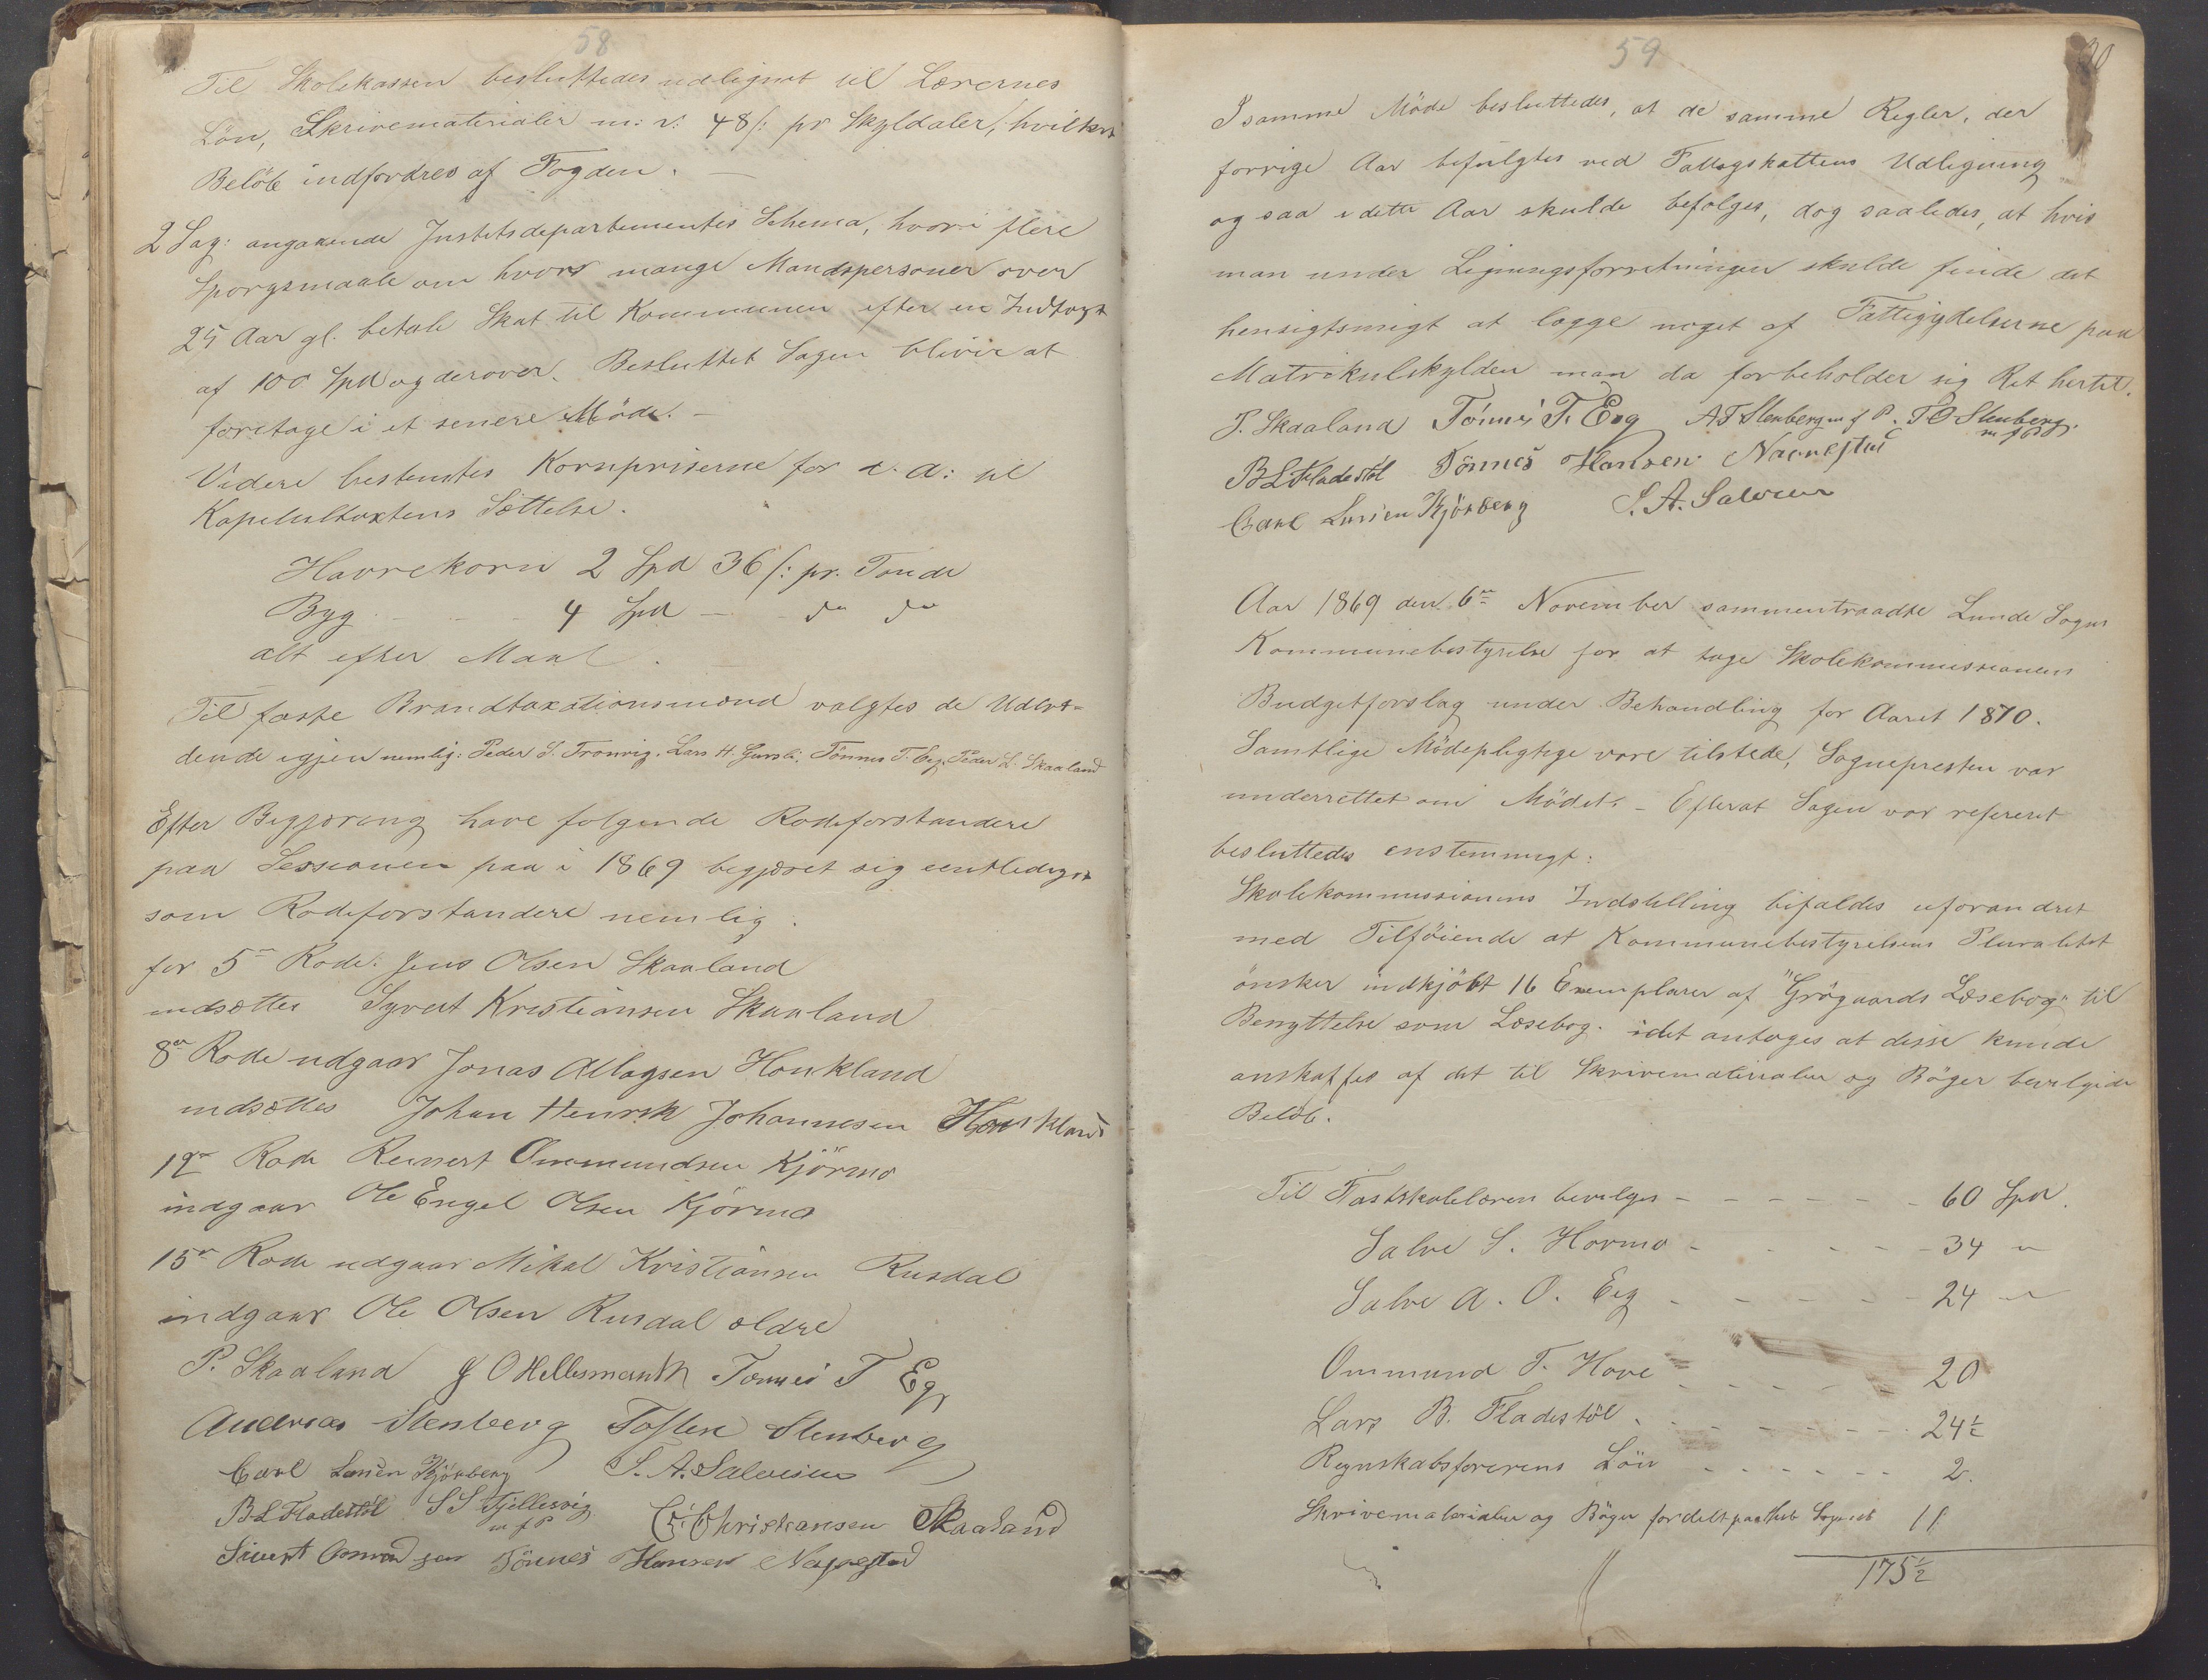 58
Til Skolekassen besluttedes udlignet til Lærernes
Lön, Skrivematerialer m: v: 48 s: pr Skyldaler, hvilket
Belöb indfordres af Fogden. —
2 Sag: angaaende Justitsdepartementes Schema, hvori flere
Sporgsmaale om hvor mange Mandspersoner over
25 Aar gl. betale Skat til Kommunen efter en Indtægt
af 100 Spd og derover. Besluttet Sagen bliver at
foretage i et senere Möde. —
Videre bestemtes Kornpriserne for d. A: til
Kapeltaxtens Sættelse.
Havrekorn 2 Spd 36 s: pr. Tonde
Byg - - - 4 Spd — do do
alt efter Maal.
Til faste Brandtaxationsmænd valgtes de Udtræ=
dende igjen nemlig: Peder S. Tronvig, Lars H. Gursli, Tönnes T. Eeg, Peder L. Skaaland
Efter Begjæring have folgende Rodeforstandere
paa Sessionen paa i 1869 begjæret sig entlediget
som Rodeforstandere nemlig.
for 5te Rode: Jens Olsen Skaaland
indsættes Syvert Kristiansen Skaaland
8de Rode udgaar Jonas Atlagsen Houkland
indsættes Johan Henrik Johannesen Houkland
12te Rode Reinert Ommundsen Kjörmo
indgaar Ole Engel Olsen Kjörmo
15de Rode udgaar Mikal Kristiansen Rusdal
indgaar Ole Olsen Rusdal ældre
P. Skaaland J O Hellesmark Tönnes T Eeg
Andreas Stenberg Tosten Stenberg
Carl Larsen Kjörberg S. A. Salvesen
B L Fladestöl S S Fjellesvig
m f P
C. Christiansen Skaaland
Sivert Tönnes Hansen Nagvestad
59
30
I samme Möde besluttedes, at de samme Regler, der
forrige Aar befulgtes ved Fattigskattens Udligning
og saa i dette Aar skulde befolges, dog saaledes, at hvis
man under Ligningsforretningen skulde finde det
hensigtsmæsigt at lægge noget af Fattigydelserne paa
Matrikulskylden man da forbeholder sig Ret hertil.
P. Skaaland Tönnes T. Eeg A. T. Stenberg m f P. T O Stenberg
m f P
B L Fladestöl Tönnes Hansen Nagvestad
Carl Larsen Kjörberg S. A. Salvesen
Aar 1869 den 6te November sammentraadte Lunde Sogns
Kommunebestyrelse for at tage Skolekommissionens
Budgetforslag under Behandling for Aaret 1870.
Samtlige Mödepligtige vare tilstede, Sognepresten var
underrettet om Mödet. — Efterat Sagen var refereret
besluttedes enstemmigt:
Skolekommissionens Indstilling bifaldes uforandret
med Tilföiende at Kommunebestyrelsens Pluralitet
önsker indkjöbt 16 Exemplarer af "Grögaards Læsebog" til
Benyttelse som Læsebog. idet antages at disse kunde
anskaffes af det til Skrivematerialier og Böger bevilgede
Belöb.
Til Fastskolelæren bevilges - - - - - - 60 Spd.
Salve S. Hovmo - - - - - 34 "
Salve A. O. Eeg - - - - - - 24 "
Ommund T. Hove - - - - - 20
Lars B. Fladestöl - - - - - - 24½
Regnskabsforerens Lön - - - - - - 2.
Skrivematerialier og Böger fordelt paa Sognet 11
175½